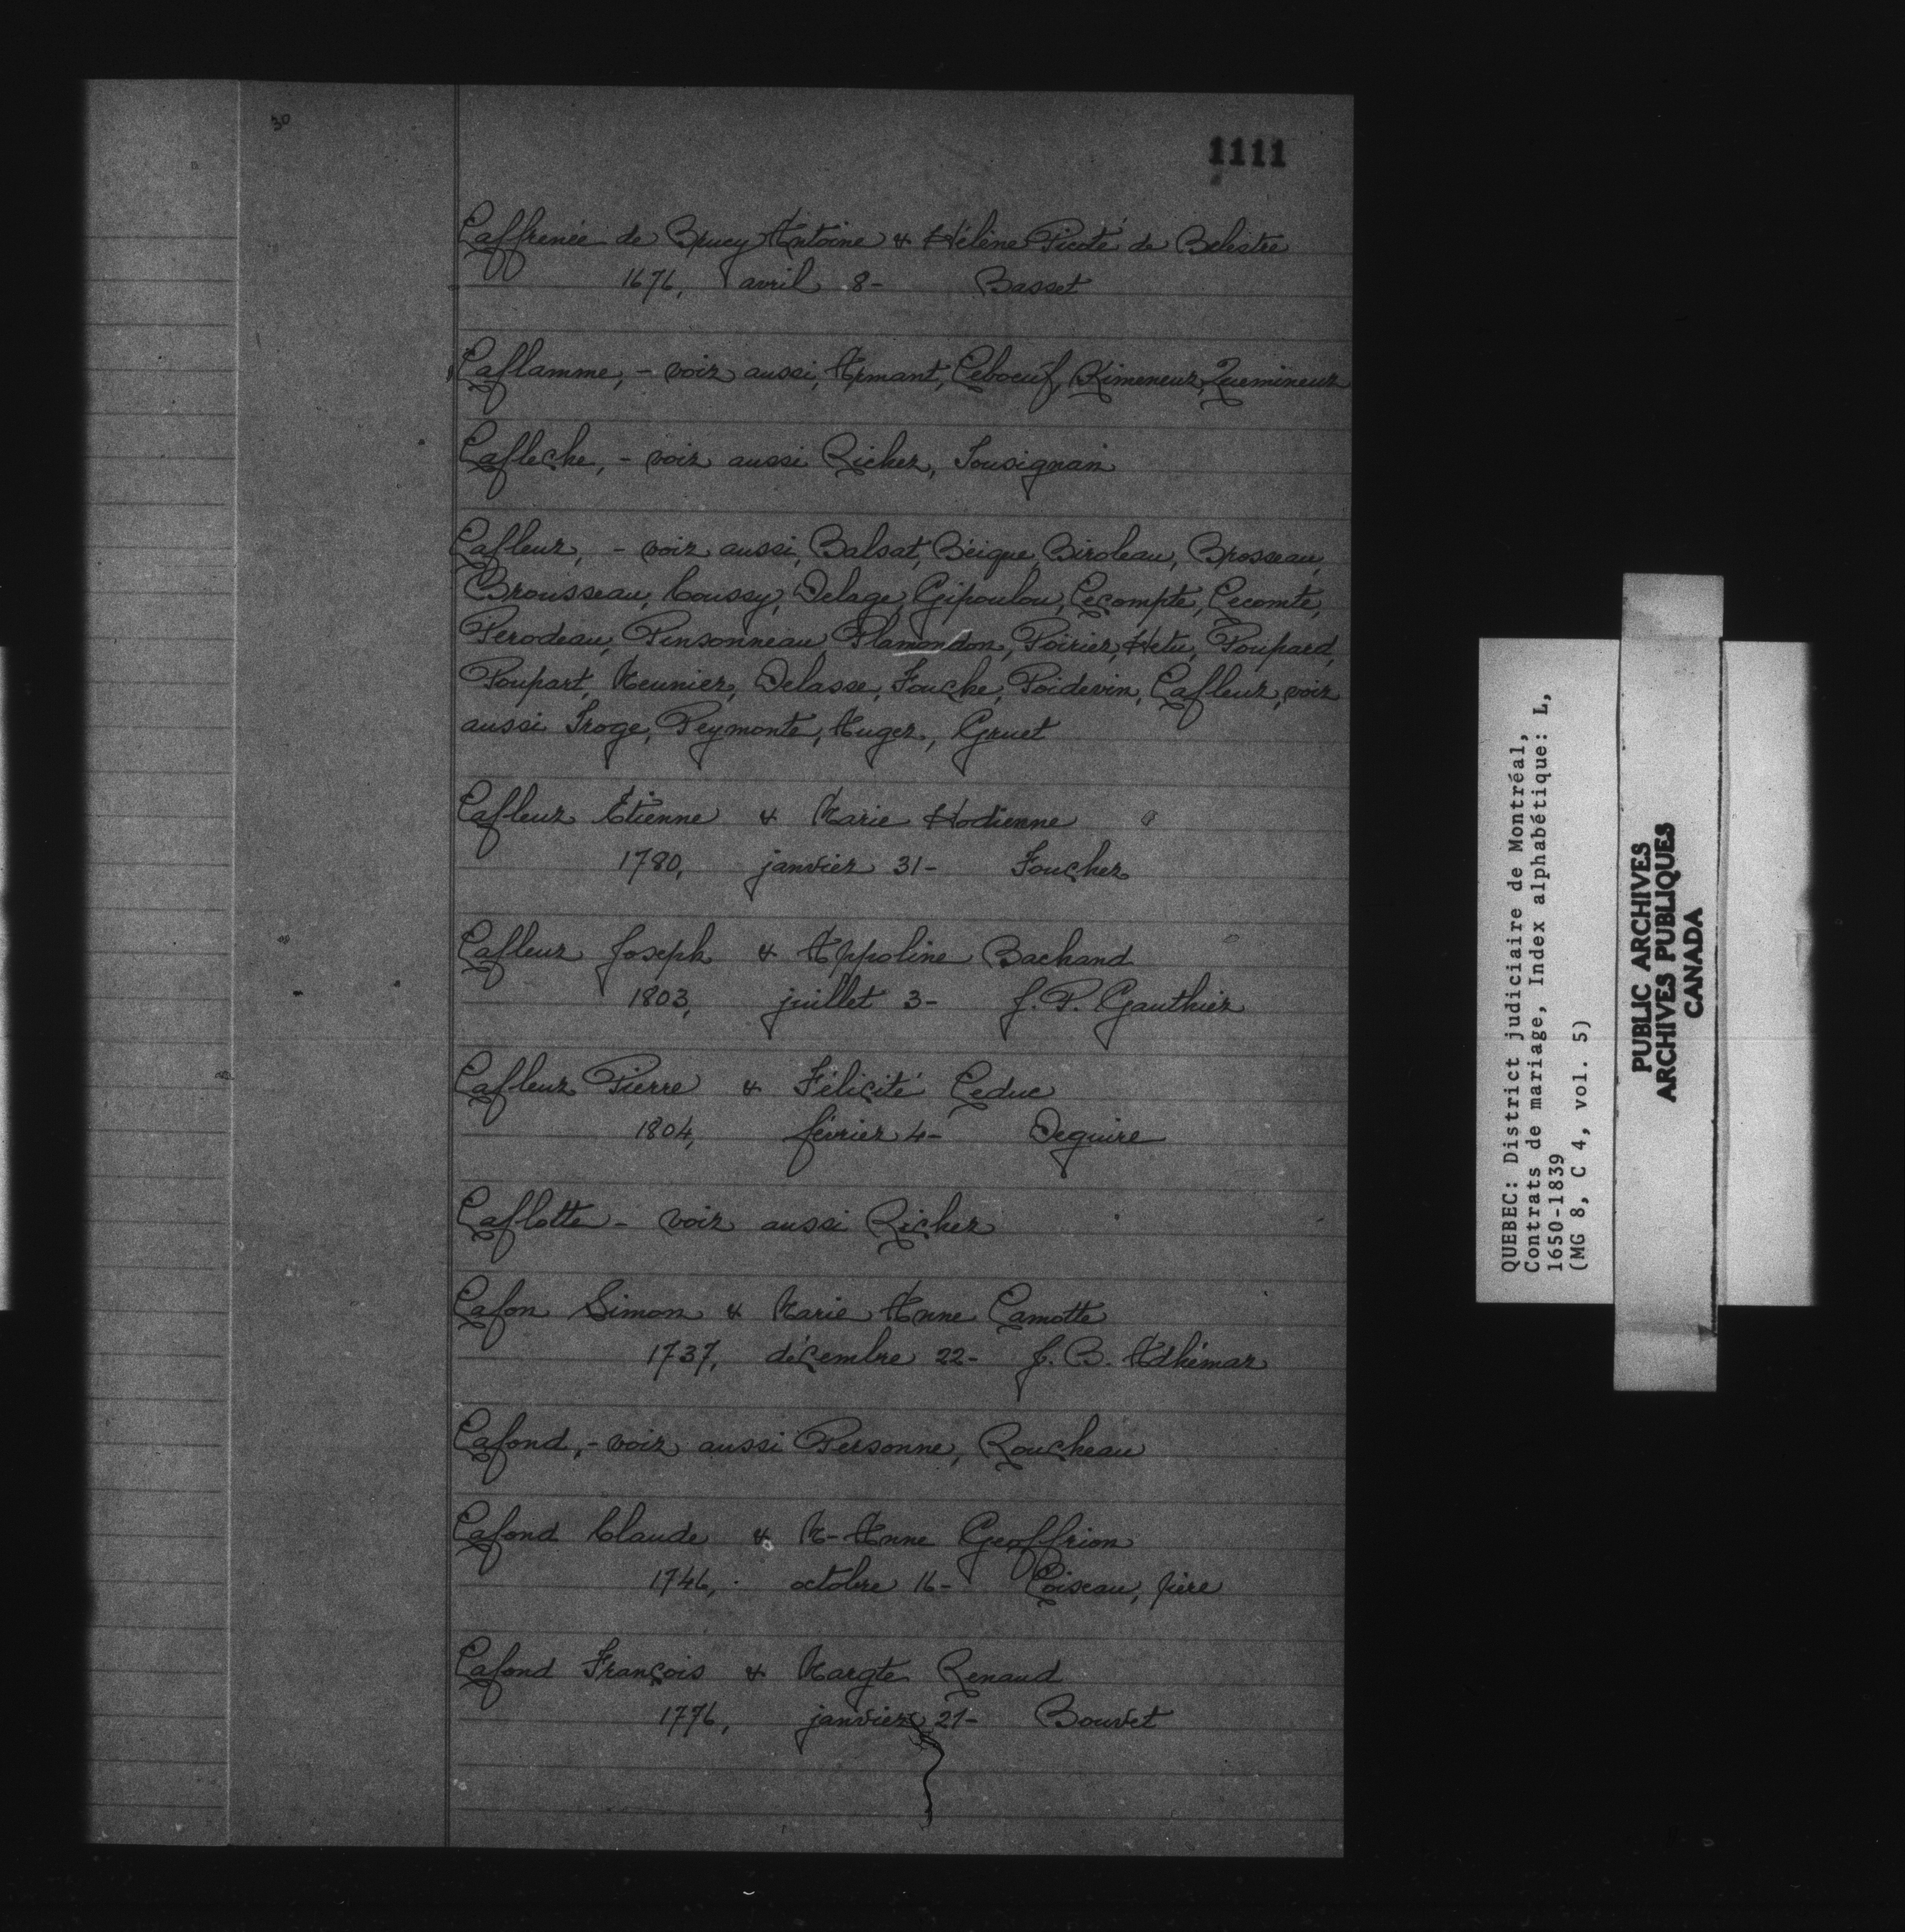 30
1111
Laffrenée de Brucy Antoine & Hélène Picoté de Belestre
1676, avril 8- Basset
Laflamme, - voir aussi, Armant, Leboeuf, Kimeneur, Quemineur
Lafleche, - voir aussi Richer, Sousignan
Lafleur, - voir aussi, Balsat, Béique, Biroleau, Brosseau,
Brousseau, Coussy, Delage, Gipoulou, Lecompte, Lecomte,
Perodeau, Pinsonneau, Plamondon, Poirier, Hetu, Poupard,
Poupart, Meunier, Delasse, Fouche, Poidevin, Lafleur, voir
aussi Iroge, Peymonte, Auger, Gruet
Lafleur Étienne & Marie Hodienne
1780, janvier 31- Foucher
Lafleur Joseph & Appoline Bachand
1803, juillet 3- J. P. Gauthier
Lafleur Pierre & Félicité Leduc
1804, février 4- Deguire
Laflotte - voir aussi Richer
Lafon Simon & Marie Anne Lamotte
1737, décembre 22- J. B. Adhémar
Lafond, - voir aussi Personne, Roucheau
Lafond Claude & M- Anne Geoffrion
1746, octobre 16- Loiseau, père
Lafond François & Margte Renaud
1776, janvier 21- Bouvet
QUEBEC: District judiciaire de Montréal,
Contrats de mariage, Index alphabétique: L,
1650-1839
(MG 8, C 4, vol. 5)
PUBLIC ARCHIVES
ARCHIVES PUBLIQUES
CANADA